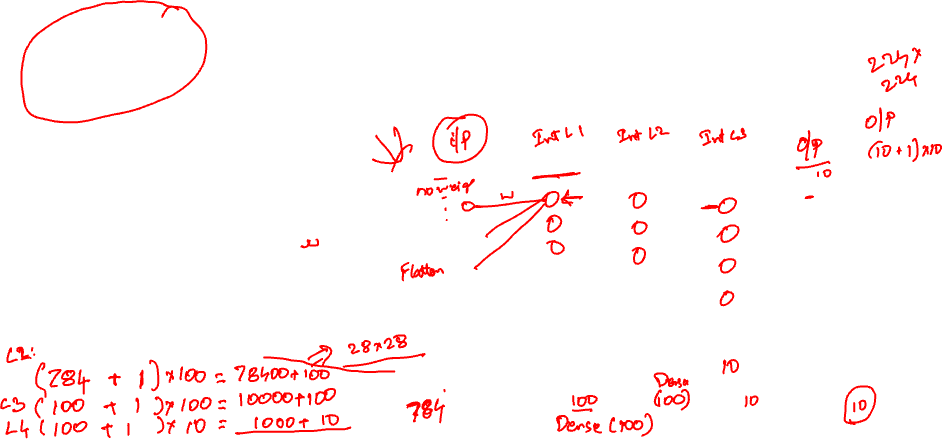 224x
224
i/P
Int L1
Int L2
Int L3
O/P
10
O/P
(10+1)x10
no weig
w
w
Flatten
L2:
28x28
(784 + 1)x100 = 78400+100
L3 (100 + 1)x100 = 10000+100
L4 (100 + 1)x10 = 1000+10
784
100
Dense (100)
Dense
(100)
10
10
10